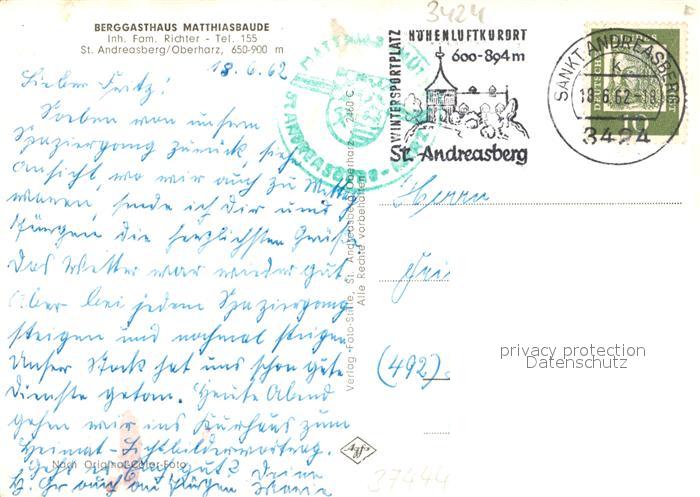 BERGGASTHAUS MATTHIASBAUDE
Inh. Fam. Richter - Tel. 155
St. Andreasberg/Oberharz, 650-900 m
18.6.62
Lieber Fritz!
Soeben von unserm
Spaziergang zurück, siehe
Ansicht, wo wir auch zu Mittag
waren, sende ich Dir und
Jürgen die herzlichsten Grüße
Das Wetter war wieder gut
Aber bei jedem Spaziergang
steigen und nochmal steigen
Unser Stock hat uns schon gute
Dienste getan. Heute Abend
gehen wir ins Kurhaus zum
Heimat-Lichtbildervortrag.
Geht es Euch gut? Deine
auch an Jürgen
Nach Original-Color-Foto
Verlag-Foto-Stille, St. Andreasberg/Oberharz 2460 C
Alle Rechte vorbehalten
ST. ANDREASBERG-HARZ
3424
WINTERSPORTPLATZ
HÖHENLUFTKURORT
600-894m
St. Andreasberg
SANKT ANDREASBERG
18.6.62-18
3424
DEUTSCHE BUNDESPOST
10
Herrn
(492)
Agfa
37444
privacy protection
Datenschutz